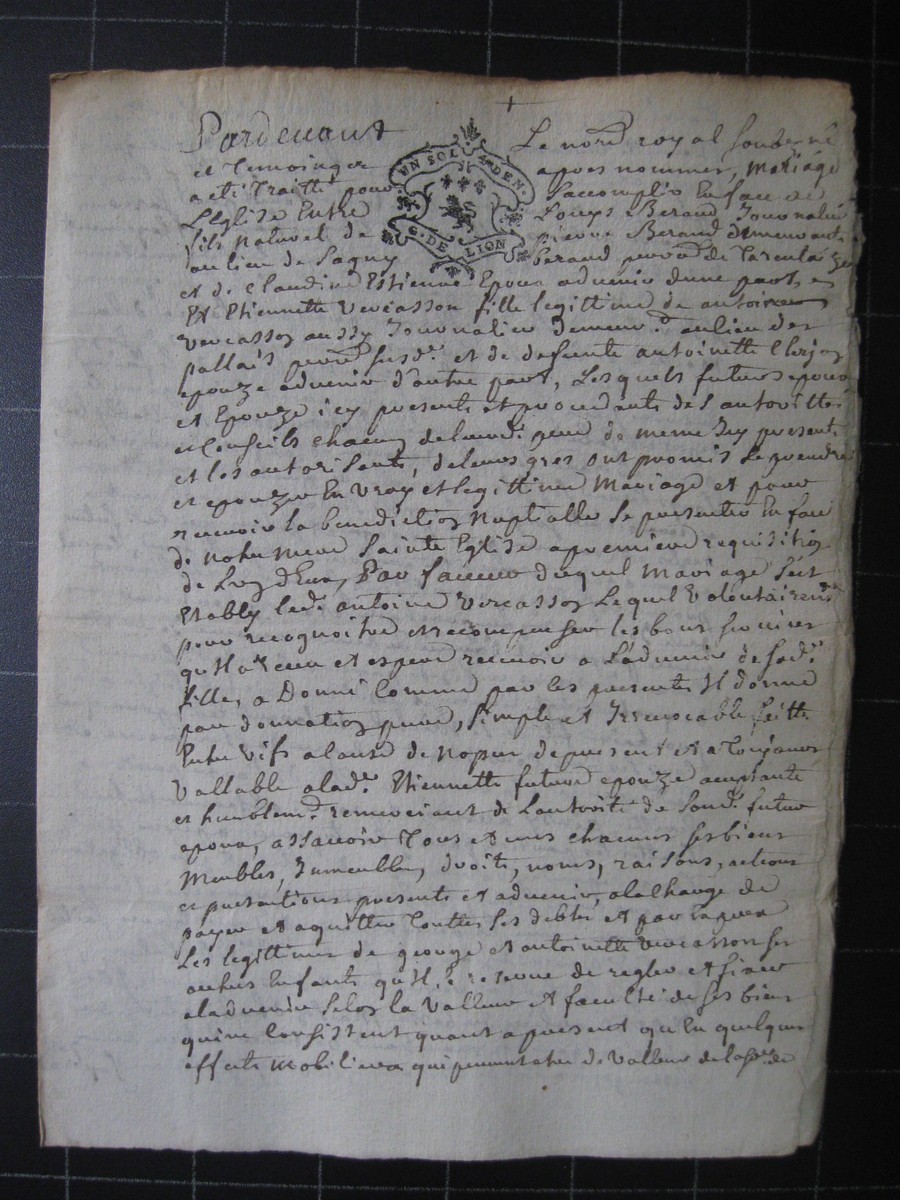 Pardevant Le nore royal soubsne
et Temoings apres nommes, Mariage
a eté Traitté pour Saccomplir En face de
L'Eglise Entre Louys Beraud Journalier
fils naturel de pierre Beraud demeurant
au lieu de Sagny beraud paroe de Tarentaize
UN SOL 4 DEN.
G. DE LION
et de Claudine Estienne Epoux advenir d'une part, et
Et Etiennette Vercasson fille legittime de antoine
Vercasson aussy Journalier demeurt au lieu des
pallais paroe susd. et de defunte antoinette
epouze advenir d'autre part, Lesquels futurs epoux
et Epouze icy presents et procedants des autorittes
et Conseils chacun de leurd. pere de meme Icy presents
et les autorisants, de leurs gres ont promis se prendre
et epouzer En vray et legittime Mariage et pour
recevoir la benediction Nuptialle se presenter En face
de notre Mere Sainte Eglise a premiere requisition
de L'un d'Eux, Par faveur duquel Mariage s'est
Etably led. antoine Vercasson Lequel Volontairemt
pour recognoitre et recompenser les bons services
qu'Il a receu et espere recevoir a L'advenir de sad.
fille, a Donné Comme par les presentes Il donne
par donnation pure, simple et Irrevocable faitte
Entre vifs a cause de Noper de present et a Toujours
Vallable a lad. Etiennette future epouze acceptante
et humblemt remerciant de L'autorité de sond. futur
epoux, assavoir Tous et uns chacuns ses biens
Meubles, Immeubles, droits, noms, raisons, actions
et pretentions presents et advenir, a la Charge de
payer et aquitter Touttes ses debtes et par
Les legittimes de george et antoinette Vercasson ses
autres Enfants qu'Il se reserve de regler et fixer
a l'advenir selon la Valleur et faculté de ses biens
qui ne Consistent quant a present qu'En quelques
effects Mobiliers qui peuvent etre de Valleur de la se de